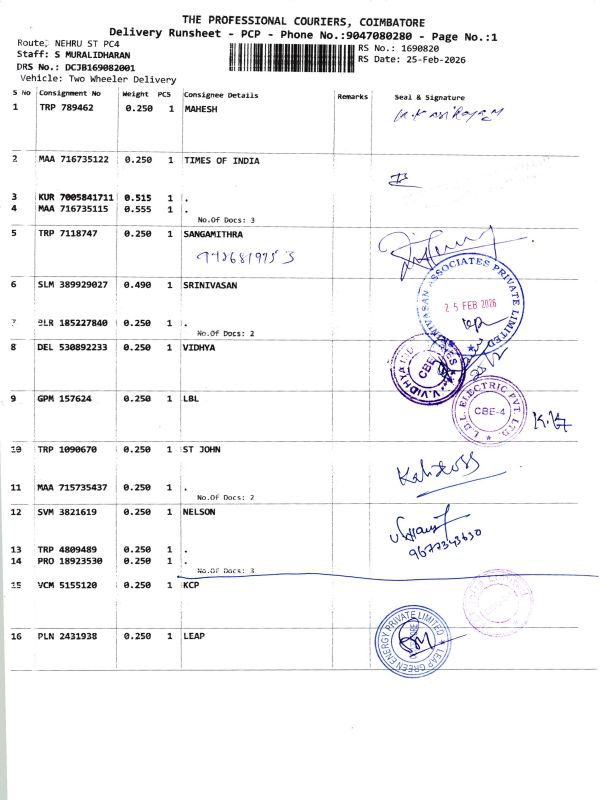 THE PROFESSIONAL COURIERS, COIMBATORE
Delivery Runsheet - PCP - Phone No.:9047080280 - Page No.:1
Route: NEHRU ST PC4
RS No.: 1690820
Staff: S MURALIDHARAN
RS Date: 25-Feb-2026
DRS No.: DCJB169082001
Vehicle: Two Wheeler Delivery
S No Consignment No Weight PCS Consignee Details Remarks Seal & Signature
1 TRP 789462 0.250 1 MAHESH
2 MAA 716735122 0.250 1 TIMES OF INDIA
3 KUR 7005841711 0.515 1 .
4 MAA 716735115 0.555 1 .
No.Of Docs: 3
5 TRP 7118747 0.250 1 SANGAMITHRA
6 SLM 389929027 0.490 1 SRINIVASAN
25 FEB 2026
7 BLR 185227840 0.250 1 .
No.Of Docs: 2
8 DEL 530892233 1 0.250 1 VIDHYA
CBE
9 GPM 157624 0.250 1 LBL
L.B.L. ELECTRIC PVT. LTD.
CBE-4
K.K
10 TRP 1090670 0.250 1 ST JOHN
11 MAA 715735437 0.250 1 .
No.Of Docs: 2
12 SVM 3821619 0.250 1 NELSON
9677343630
13 TRP 4809489 0.250 1 .
14 PRO 18923530 0.250 1 .
No.Of Docs: 3
15 VCM 5155120 0.250 1 KCP
16 PLN 2431938 0.250 1 LEAP
LEAP GREEN ENERGY PRIVATE LIMITED